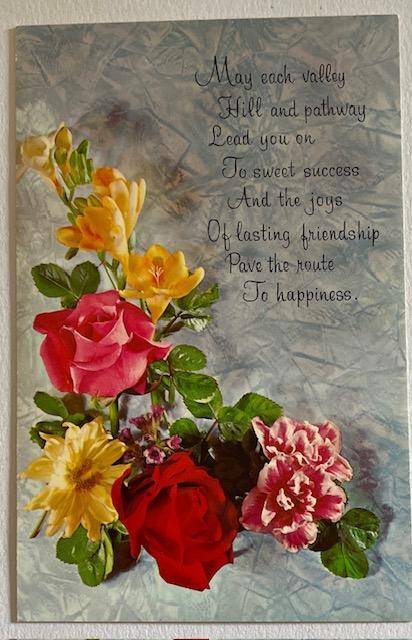 May each valley
Hill and pathway
Lead you on
To sweet success
And the joys
Of lasting friendship
Pave the route
To happiness.